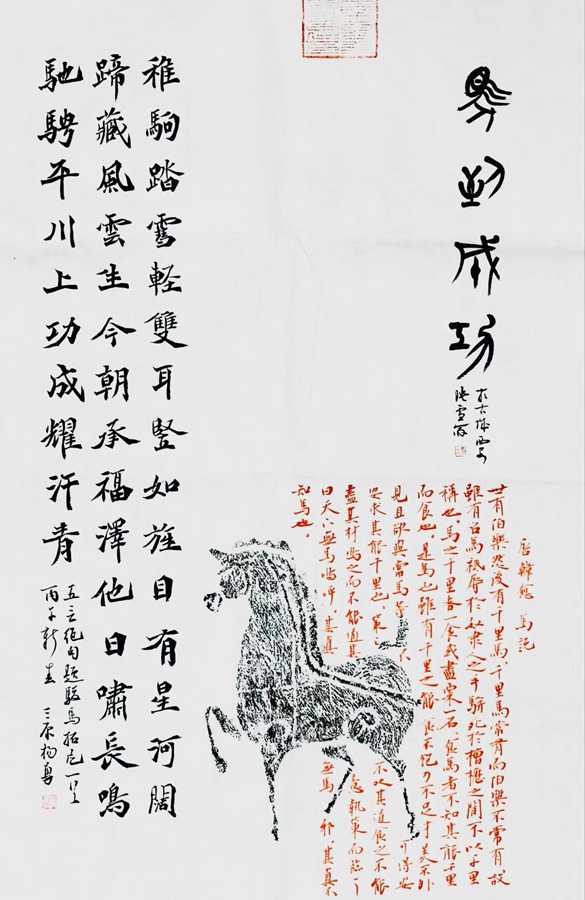 馬到成功
於古城西安
唐韓愈 馬說
世有伯樂然後有千里馬千里馬常有而伯樂不常有故
雖有名馬祇辱於奴隸人之手駢死於槽櫪之間不以千里
稱也，馬之千里者一食或盡粟一石，食馬者不知其能千里
而食也，是馬也雖有千里之能，食不飽力不足才美不外
見且欲與常馬等不可得安
求其能千里也，策之不以其道食之不能
盡其材鳴之而不能通其意執策而臨之
曰天下無馬嗚呼其真無馬邪，其真不
知馬也。
稚駒踏雪軽雙耳竪如旌目有星河闊
蹄藏風雲生今朝承福澤他日嘯長鳴
馳騁平川上功成耀汗青
五言絕句題駿馬拓片一首
丙午新春 三原楊勇